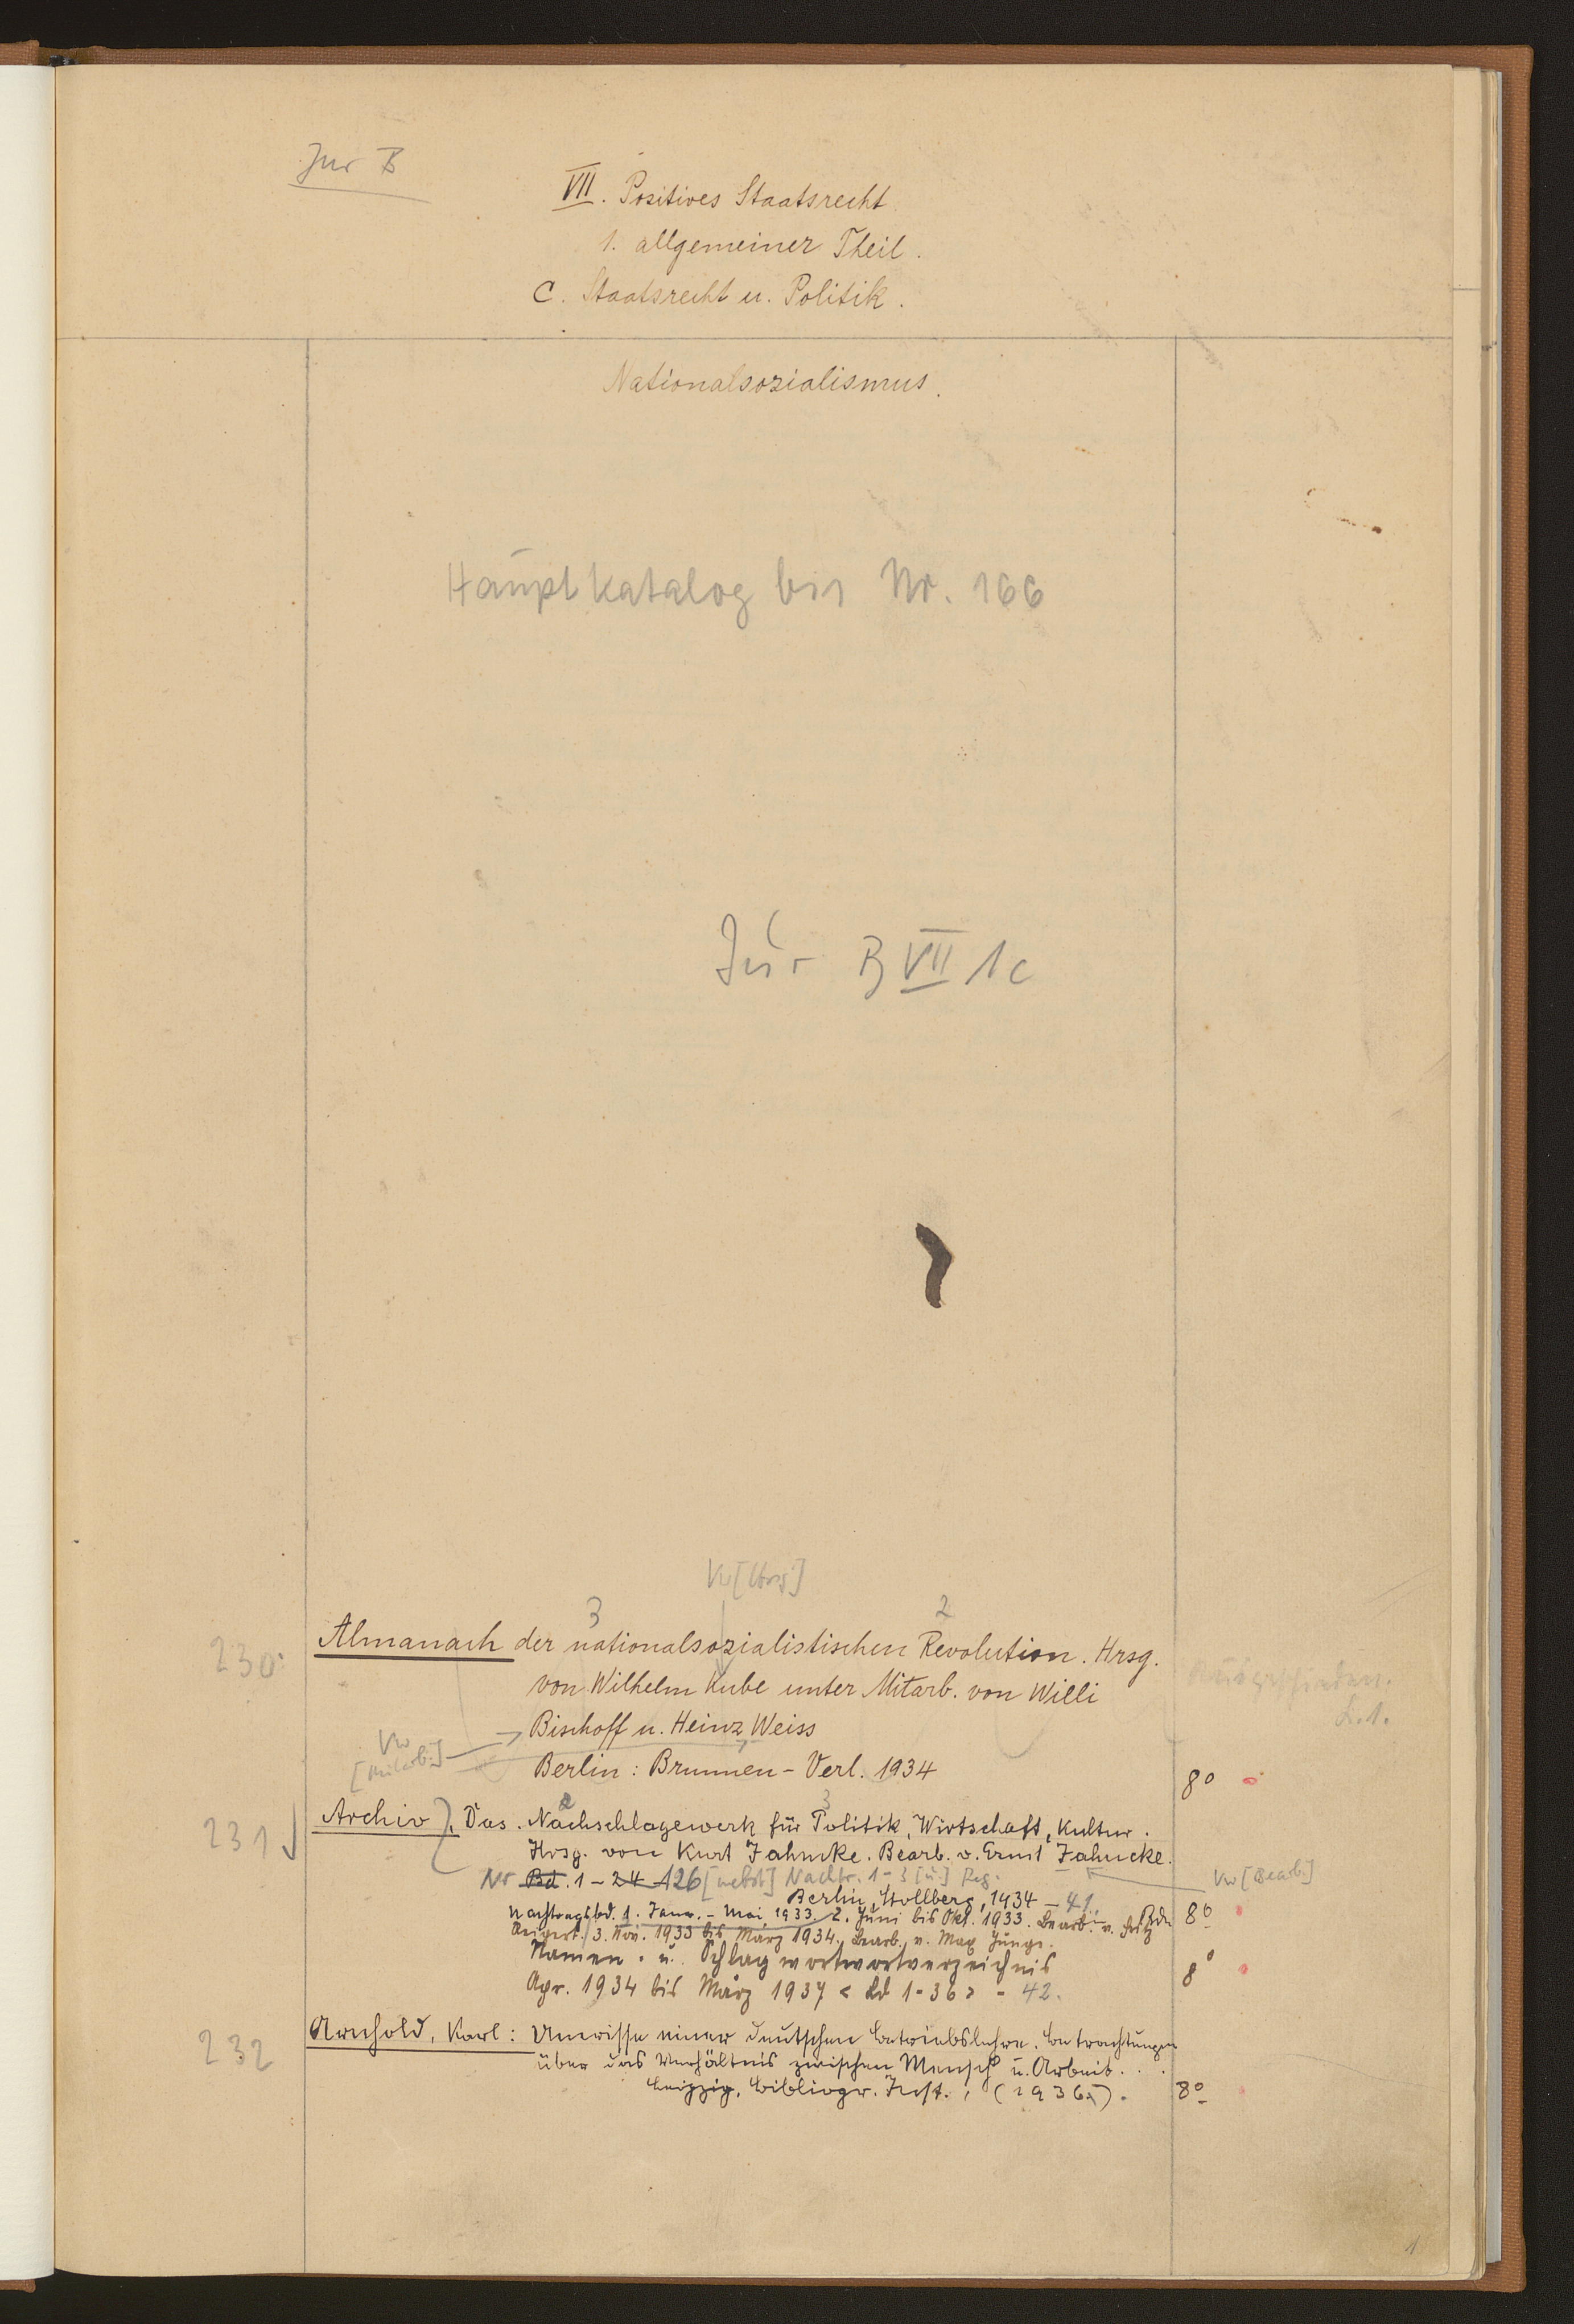 Jur B
VII. Positives Staatsrecht
1. allgemeiner Theil.
C. Staatsrecht u. Politik.
Nationalsozialismus.
Hauptkatalog bis Nr. 166
Jur B VII 1c
Vw [Hrsg]
3 2
230 Almanach der nationalsozialistischen Revolution. Hrsg.
von Wilhelm Kube unter Mitarb. von Willi
Ausgeschieden.
Bischoff u. Heinz Weiss
Vw [Mitarb.]
Berlin: Brunnen-Verl. 1934 8°
2 3
231 Archiv, Das. Nachschlagewerk für Politik, Wirtschaft, Kultur.
Hrsg. von Kurt Jahncke. Bearb. v. Ernst Jahncke.
Nr Bd. 1-24 126 [nebst] Nachtr. 1-3 [u.] Reg. Vw [Bearb.]
Berlin, Stollberg, 1934-41. 8°
Nachtragsbd. 1. Jan. - Mai 1933. 2. Juni bis Okt. 1933. Bearb. v. Fritz
3. Nov. 1933 bis März 1934. Bearb. v. Max Junge.
Namen- u. Schlagwortwortverzeichnis
Apr. 1934 bis März 1937 < Bd 1-36 > - 42. 8°
232 Arnhold, Karl: Umrisse einer deutschen Betriebslehre. Betrachtungen
über das Verhältnis zwischen Mensch u. Arbeit. . .
Leipzig, Bibliogr. Inst., (1936). 8°
1